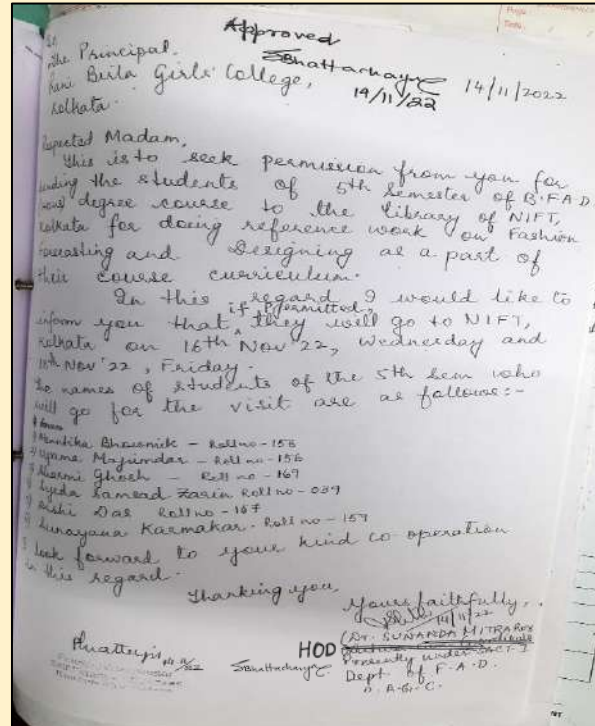 Approved
SBhattacharya
14/11/22
14/11/2022
To
The Principal,
Rani Birla Girls' College,
Kolkata.
Respected Madam,
This is to seek permission from you for
sending the students of 5th Semester of B.F.A.D.
(Hons) degree course to the library of NIFT,
Kolkata for doing reference work on Fashion
Forecasting and Designing as a part of
their course curriculum.
In this regard I would like to
inform you that, if permitted, they will go to NIFT,
Kolkata on 16th Nov'22, Wednesday and
Nov'22, Friday.
The names of students of the 5th Sem who
will go for the visit are as follows:-
Bhowmik - Roll no - 156
Majumdar - Roll no - 156
Ghosh - Roll no - 169
Syeda Samead Zarin Roll no - 039
Das Roll no - 167
Sunayana Karmakar - Roll no - 159
I look forward to your kind co-operation
in this regard.
Thanking you,
Yours faithfully,
14/11/22
(Dr. SUNANDA MITRA ROY
Presently under SACT-I
HOD
Dept of F.A.D.
SBhattacharya